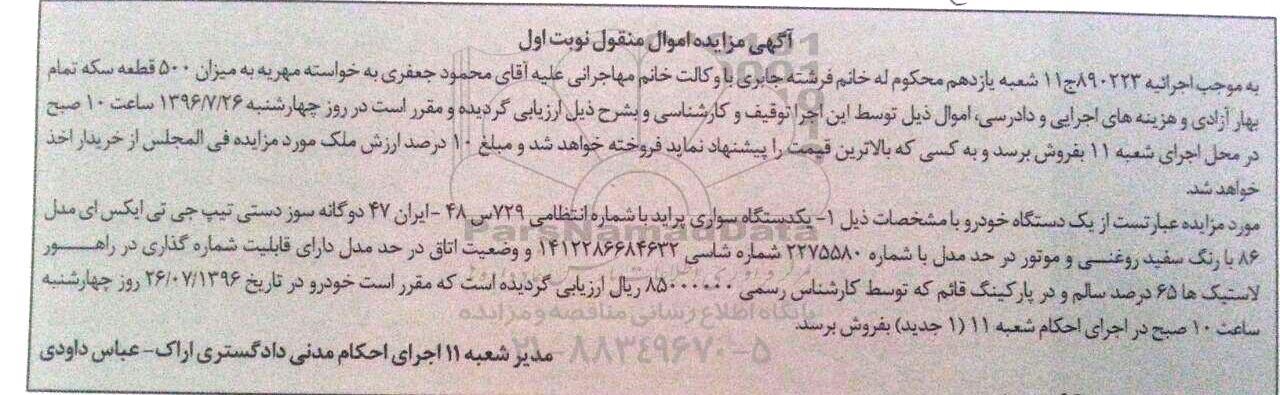 آگهی مزایده اموال منقول نوبت اول
به موجب اجرائیه ۸۹۰۲۲۳ج۱۱ شعبه یازدهم محکوم له خانم فرشته جابری با وکالت خانم مهاجرانی علیه آقای محمود جعفری به خواسته مهریه به میزان ۵۰۰ قطعه سکه تمام
بهار آزادی و هزینه های اجرایی و دادرسی، اموال ذیل توسط این اجرا توقیف و کارشناسی و بشرح ذیل ارزیابی گردیده و مقرر است در روز چهارشنبه ۱۳۹۶/۷/۲۶ ساعت ۱۰ صبح
در محل اجرای شعبه ۱۱ بفروش برسد و به کسی که بالاترین قیمت را پیشنهاد نماید فروخته خواهد شد و مبلغ ۱۰ درصد ارزش ملک مورد مزایده فی المجلس از خریدار اخذ
خواهد شد.
مورد مزایده عبارتست از یک دستگاه خودرو با مشخصات ذیل ۱- یکدستگاه سواری پراید با شماره انتظامی ۷۲۹س۴۸ -ایران ۴۷ دوگانه سوز دستی تیپ جی تی ایکس ای مدل
۸۶ با رنگ سفید روغنی و موتور در حد مدل با شماره ۲۲۷۵۵۸۰ شماره شاسی ۱۴۱۲۲۸۶۶۸۴۶۳۲ و وضعیت اتاق در حد مدل دارای قابلیت شماره گذاری در راهور
لاستیک ها ۶۵ درصد سالم و در پارکینگ قائم که توسط کارشناس رسمی ۸۵۰۰۰۰۰۰ ریال ارزیابی گردیده است که مقرر است خودرو در تاریخ ۲۶/۰۷/۱۳۹۶ روز چهارشنبه
ساعت ۱۰ صبح در اجرای احکام شعبه ۱۱ (۱ جدید) بفروش برسد.
مدیر شعبه ۱۱ اجرای احکام مدنی دادگستری اراک- عباس داودی
ParsNamadData
پایگاه اطلاع رسانی مناقصه و مزایده
۰۲۱-۸۸۳۴۹۶۷۰-۵